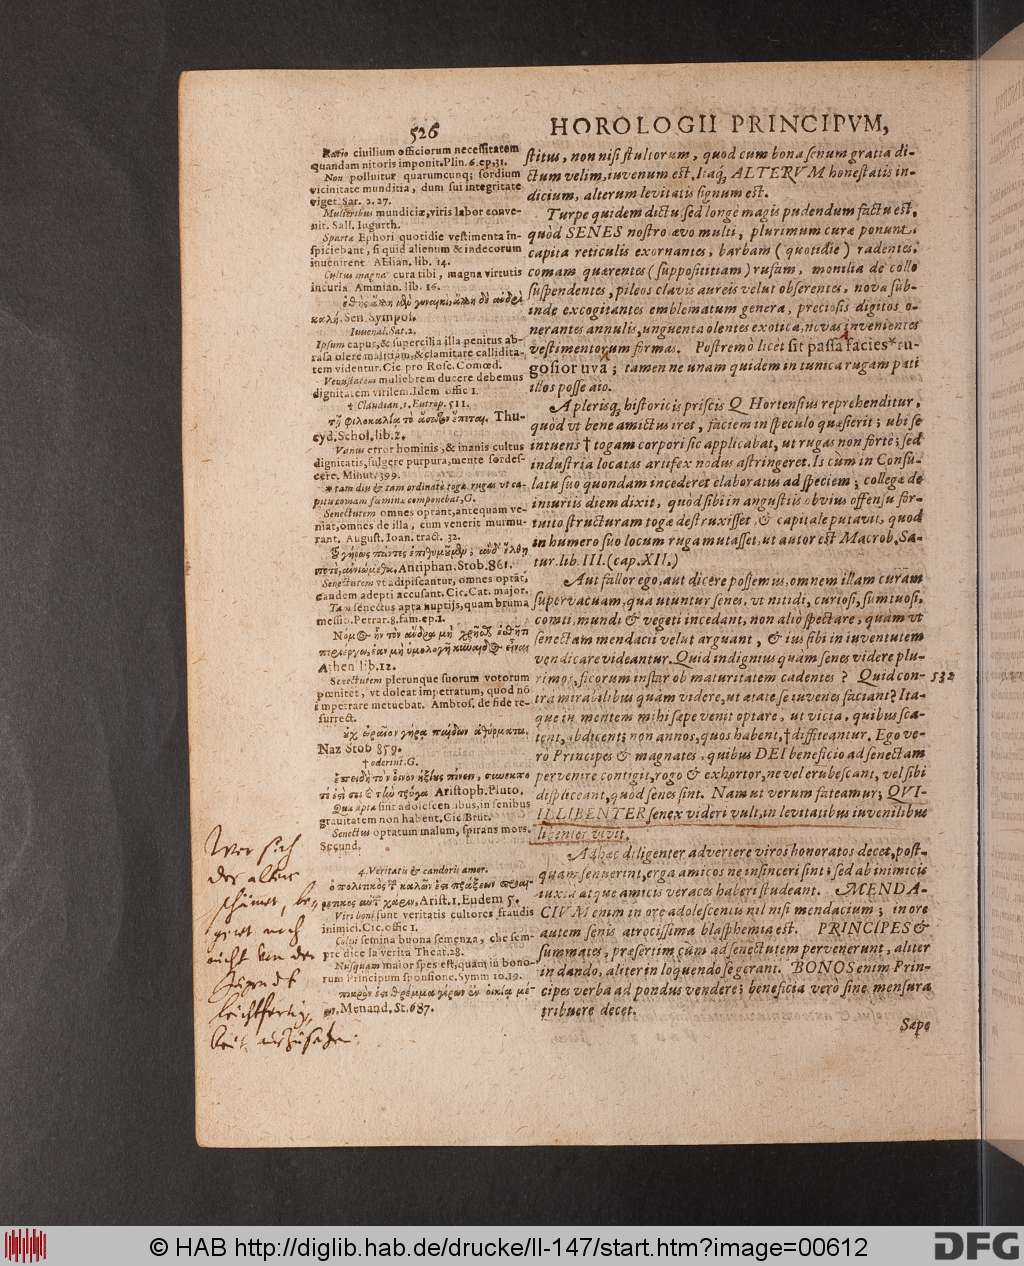 526
HOROLOGII PRINCIPVM,
Ratio ciuilium officiorum necessitatem
quandam nitoris imponit. Plin. 6. ep, 31.
Non polluitur quarumcunq; sordium
vicinitate munditia, dum sui integritate
viget. Sar. 2. 27.
Mulieribus mundiciæ, viris labor conve-
nit. Sall. Iugurth.
Spartæ Ephori quotidie vestimenta in-
spiciebant, si quid alienum & indecorum
invenirent Ælian. lib. 14.
Cultus magna cura tibi, magna virtutis
incuria Ammian. lib. 16.
καλή. Sen. Sympos.
Iuvenal. Sat. 2.
Ipsum caput, & supercilia illa penitus ab-
rasa olere malitiam, & clamitare callidita-
tem videntur. Cic pro Rosc. Comœd.
Venustatem muliebrem ducere debemus
dignitatem virilem. Idem offic 1.
† Claudian. 1. Eutrop. 511.
Thu-
cyd. Schol. lib. 2.
Vanus error hominis, & inanis cultus
dignitatis, fulgere purpura, mente sordes-
cere. Minut. 399.
* tam diu & tam ordinatè togæ rugas vt ca-
pitis comam fœmina componebat, G.
Senectutem omnes optant, antequam ve-
niat, omnes de illa, cum venerit murmu-
rant. August. Ioan. tract. 32.
Antiphan. Stob. 861.
Senectutem vt adipiscantur, omnes optāt,
eandem adepti accusant. Cic. Cat. major.
Tam senectus apta nuptijs, quam bruma
messio. Petrar. 8. fam. ep. 1.
Athen lib. 12.
Senectutem plerunque suorum votorum
pœnitet, vt doleat impetratum, quod nō
impetrare metuebat. Ambros. de fide re-
surrect.
Naz Stob 859.
† oderint. G.
Aristoph. Pluto.
Quæ apta sint adolescentibus, in senibus
gravitatem non habent. Cic Brut.
Senectus optatum malum, spirans mors.
Secund.
4. Veritatis & candoris amor.
Arist. 1. Eudem 5.
Viri boni sunt veritatis cultores fraudis
inimici. Cic. offic 1.
Colui semina buona semenza, che sem-
pre dice la verita Theat. 28.
Nusquam maior spes est, quam in bono-
rum Principum sponsione. Symm 10. 19.
Menand. St. 687.
stitus, non nisi stultorum, quod cum bona senum gratia di-
ctum velim, iuvenum est. Itaq; ALTERVM honestatis in-
dicium, alterum levitatis signum est.
Turpe quidem dictu sed longè magis pudendum factu est,
quòd SENES nostro ævo multi, plurimum curæ ponunt,
capita reticulis exornantes, barbam (quotidie) radentes,
comam quærentes (supposititiam) rufam, monilia de collo
suspendentes, pileos clavis aureis velut obserentes, nova sub-
inde excogitantes emblematum genera, preciosis digitos o-
nerantes annulis, unguenta olentes exotica, novas invenientes
vestimentorum formas. Postremò licet sit passa facies* ru-
gosior uva; tamen ne unam quidem in tunica rugam pati
illos posse aio.
A plerisq, historicis priscis Q Hortensius reprehenditur,
quòd vt bene amictus iret, faciem in speculo quæsierit; ubi se
intuens † togam corpori sic applicabat, ut rugas non fortè; sed
industria locatas artifex nodus astringeret. Is cùm in Consu-
latu suo quondam incederet elaboratus ad speciem; collegæ de
iniuriis diem dixit, quòd sibi in angustiis obvius offensu for-
tuito structuram togæ destruxisset, & capitale putavit, quod
in humero suo locum ruga mutasset, ut autor est Macrob. Sa-
tur. lib. III. (cap. XII.)
Aut fallor ego, aut dicere possemus, omnem illam curam
supervacuam, qua utuntur senes, vt nitidi, curiosi, sumtuosi,
comti, mundi & vegeti incedant, non aliò spectare, quàm vt
senectam mendacii velut arguant, & ius sibi in iuventutem
vendicare videantur. Quid indignius quàm senes videre plu-
rimos, ficorum instar ob maturitatem cadentes? Quid con-
532
tra mirabilibus quàm videre, ut ætate se iuvenes faciant? Ita-
que in mentem mihi sæpe venit optare, ut vicia, quibus sca-
tent, abdicent; non annos, quos habent, † diffiteantur. Ego ve-
rò Principes & magnates, quibus DEI beneficio ad senectam
pervenire contigit, rogo & exhortor, ne vel erubescant, vel sibi
displiceant, quòd senes sint. Nam ut verum fateamur; QVI-
ILLIBENTER senex videri vult, in levitatibus iuvenilibus
libenter vivit.
Adhæc diligenter advertere viros honoratos decet, post-
quam senuerint, erga amicos ne insinceri sint; sed ab inimicis
iuxta atque amicis veraces haberi studeant. MENDA-
CIVM enim in ore adolescentis nil nisi mendacium; in ore
autem senis atrocissima blasphemia est. PRINCIPES &
summates, præsertim cùm ad senectutem pervenerunt, aliter
in dando, aliter in loquendo se gerant. BONOS enim Prin-
cipes verba ad pondus vendere; beneficia verò sine mensura
tribuere decet.
Sæpe
Wer sich
des alters
schämet, be-
girt auch
nicht von der
Jugendt
leichtfertig-
keit auszusehen.
© HAB http://diglib.hab.de/drucke/ll-147/start.htm?image=00612
DFG